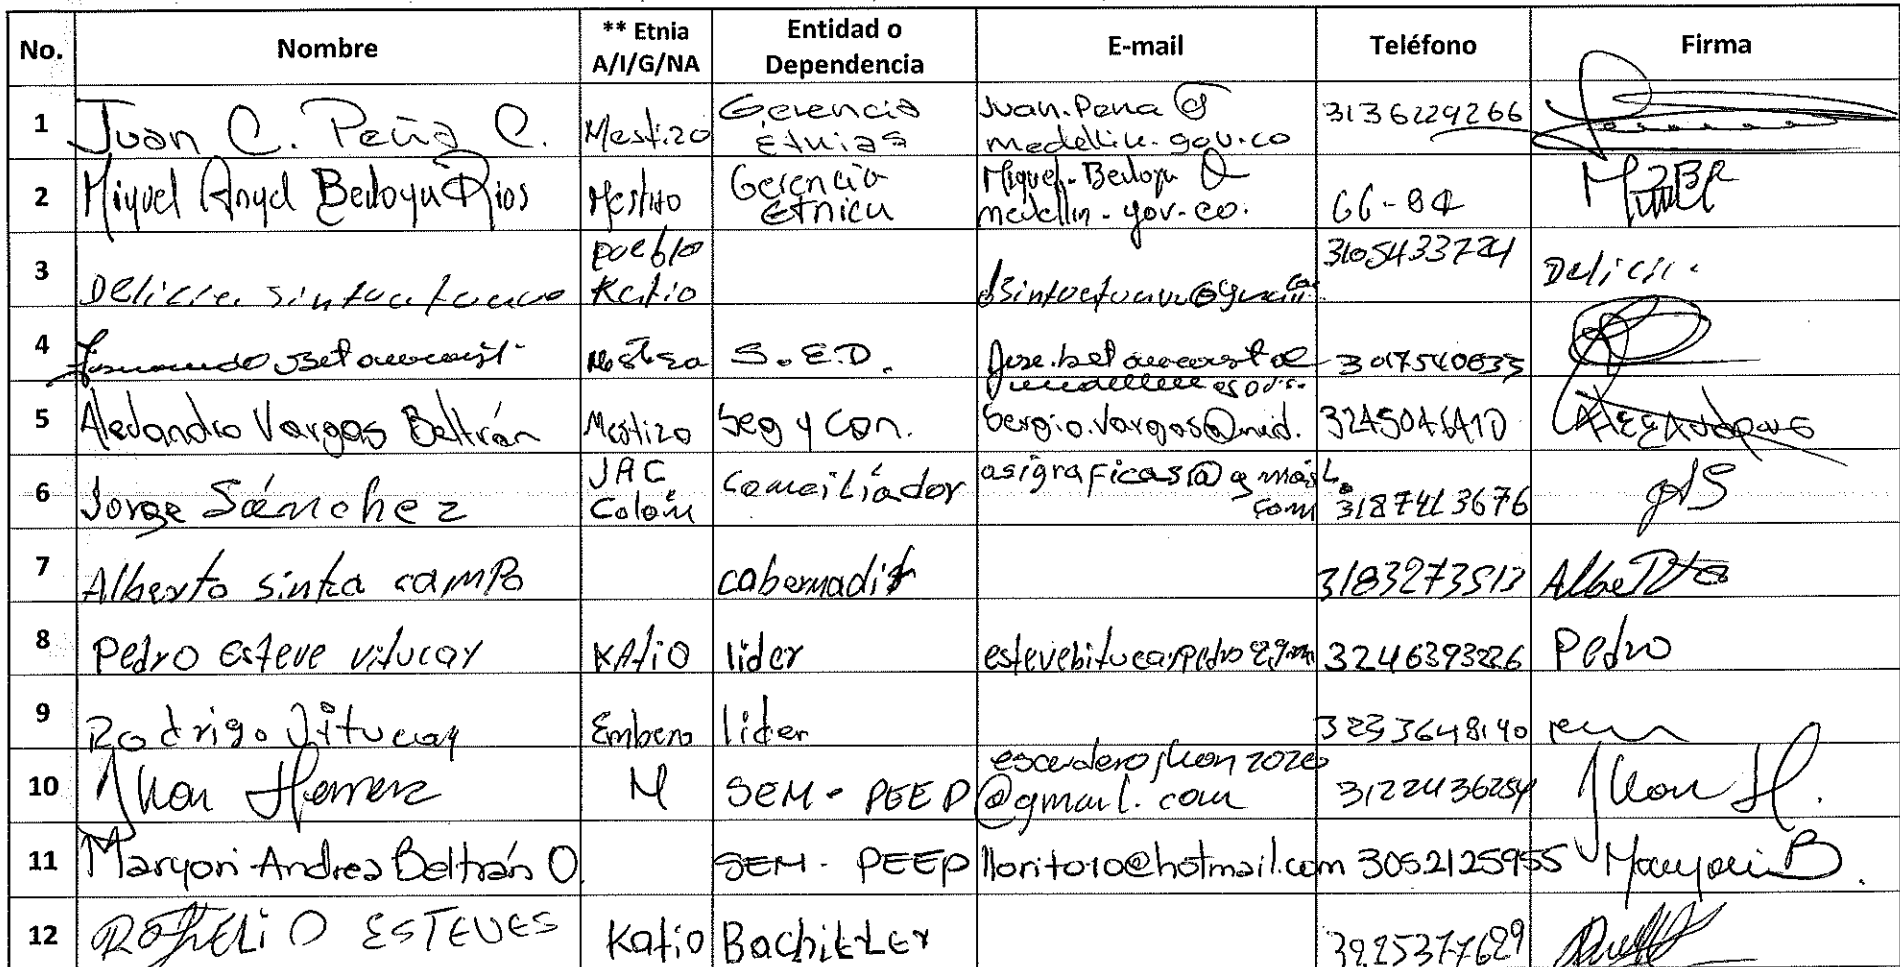 No. Nombre ** Etnia A/I/G/NA Entidad o Dependencia E-mail Teléfono Firma
1 Juan C. Peña C. Mestizo Gerencia Etnias Juan.Pena@ medellin.gov.co 3136229266
2 Miguel Angel Bedoya Rios Mestizo Gerencia Etnica Miguel.Bedoya@ medellin.gov.co. 66-84
3 Delicia pueblo Katio 3105433721 Delicia
4 Mestiza S.E.D. 3017540633
5 Alejandro Vargas Beltrán Mestizo Seg y Con. Sergio.Vargas@med. 3245046410
6 Jorge Sánchez JAC Colón Conciliador asigraficas@gmail.com 3187413676 JAS
7 Alberto sinta campo 3183273513 Alberto
8 Pedro Esteve vitucay KAtiO lider 3246393226 Pedro
9 Rodrigo Vitucay Embera lider 3233648140
10 Jhon Herrera M SEM - PEEP escuderojhon2020 @gmail.com 3122436254 Jhon H.
11 Maryori Andrea Beltrán O. SEM - PEEP llorito10@hotmail.com 3052125955 Maryori B.
12 ROGELIO ESTEVES Katio Bachiller 3225377629